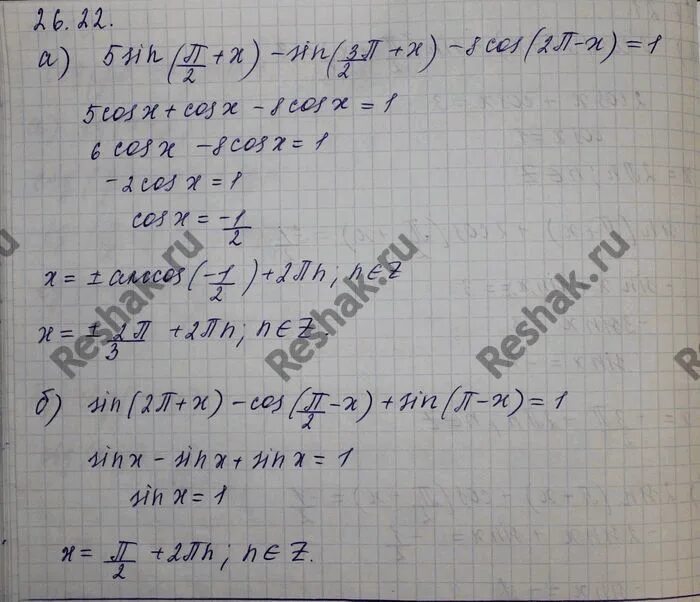 26.22.
а) 5sin(π/2+x) - sin(3π/2+x) - 8cos(2π-x) = 1
5cosx + cosx - 8cosx = 1
6cosx - 8cosx = 1
-2cosx = 1
cosx = -1/2
x = ± arccos(-1/2) + 2πn; n∈Z
x = ± 2π/3 + 2πn; n∈Z.
б) sin(2π+x) - cos(π/2-x) + sin(π-x) = 1
sinx - sinx + sinx = 1
sinx = 1
x = π/2 + 2πn; n∈Z.
Reshak.ru
Reshak.ru
Reshak.ru
Reshak.ru